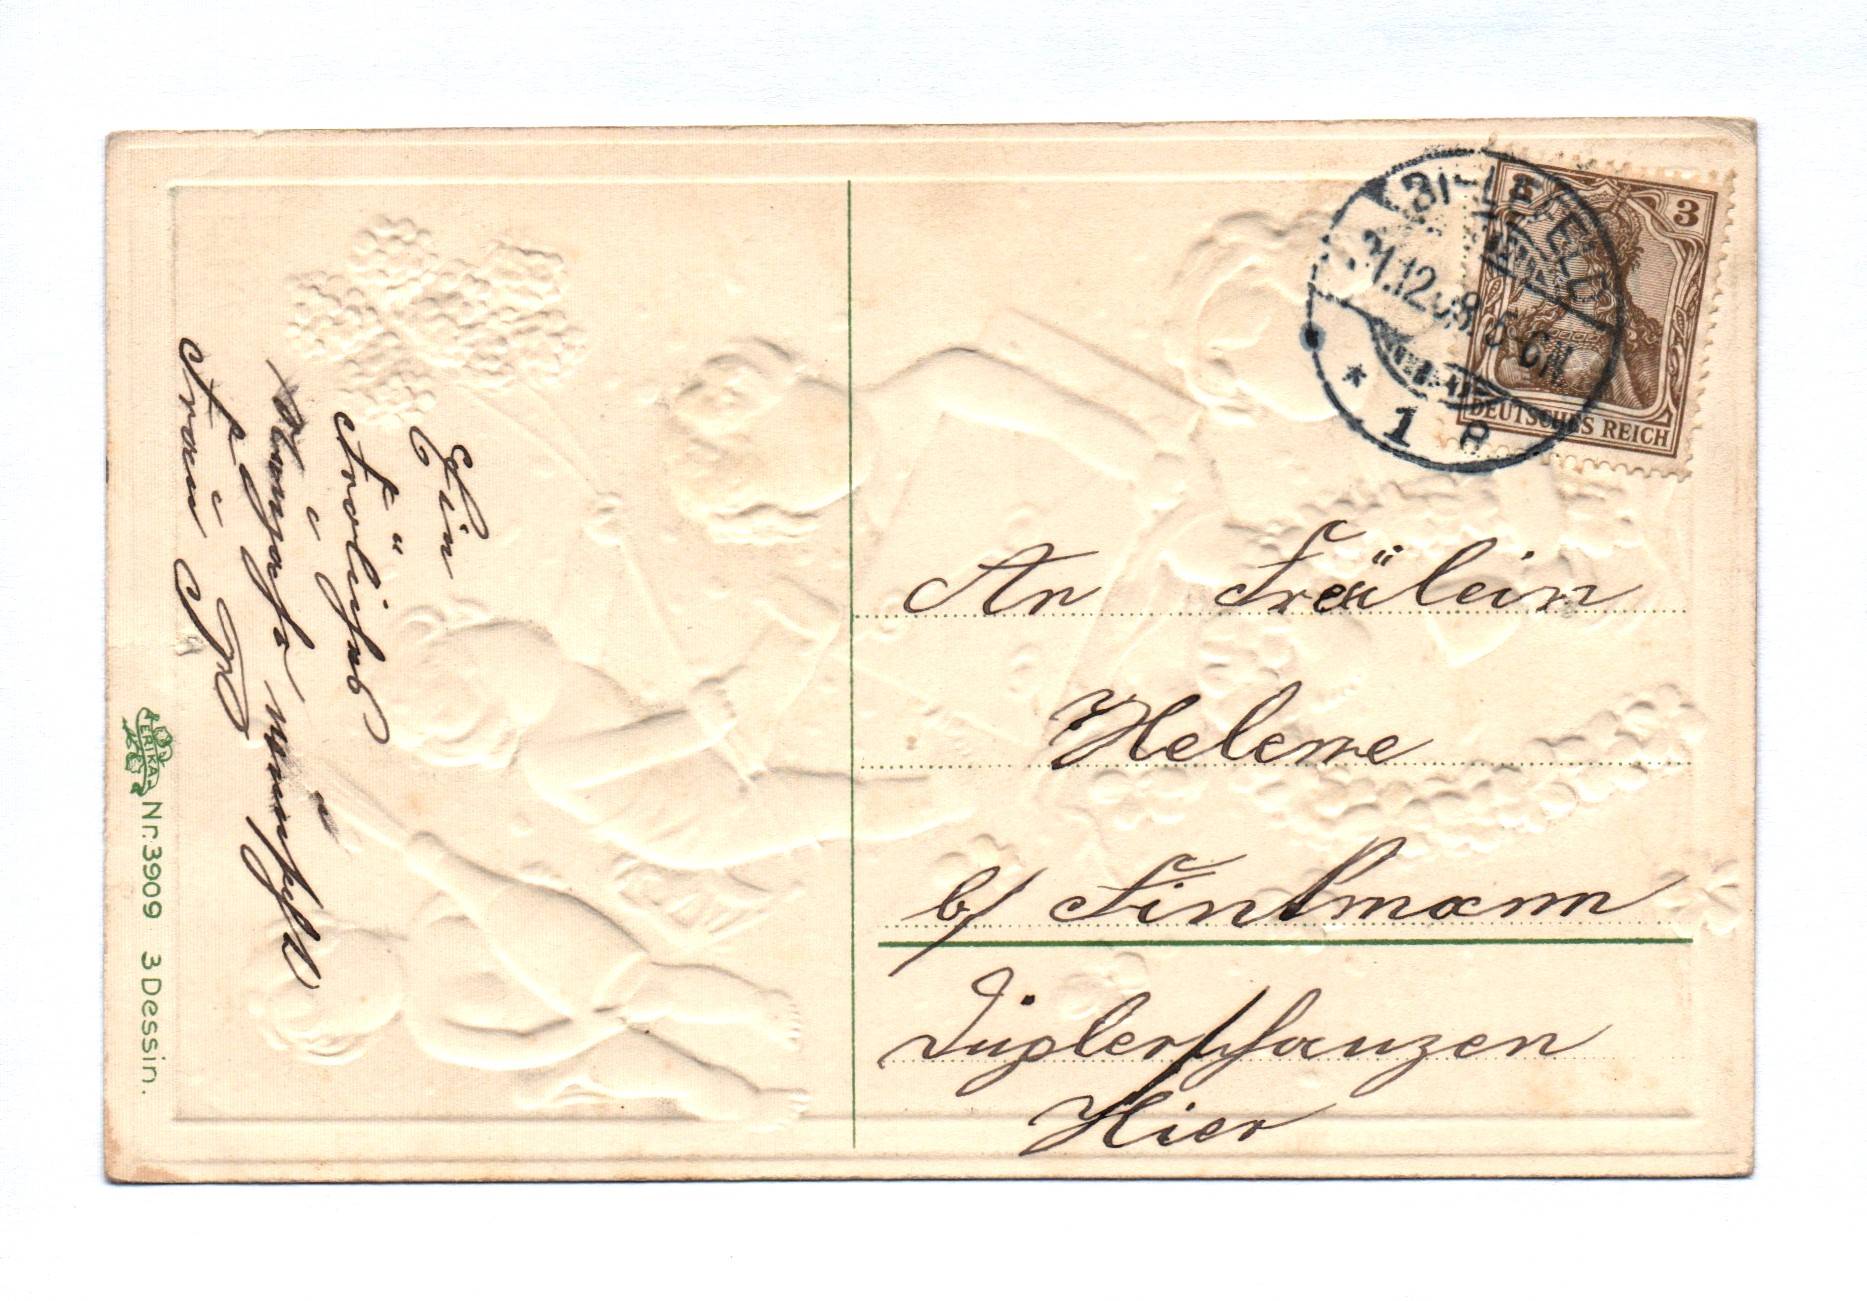 Ein
Fröliches
Neujahr wünscht
Frau
ERIKA
Nr. 3909 3 Dessin.
BIELEFELD
31.12.08. 5-6N.
* 1 B
3
DEUTSCHES REICH
An Fräulein
Helene
b/ Fintmann
Hier